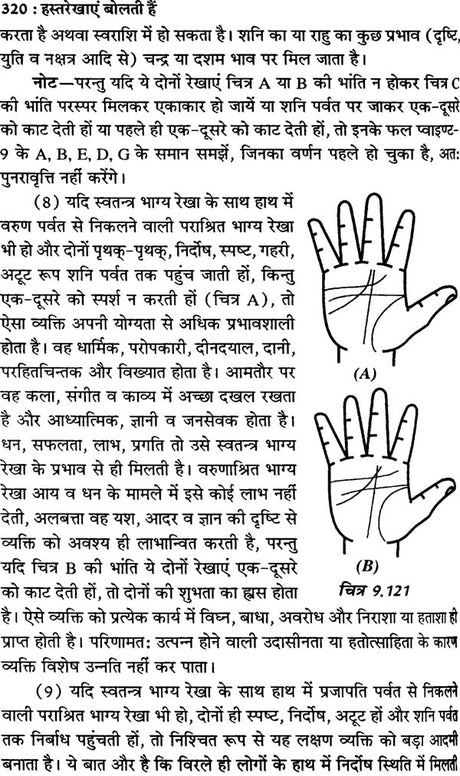 320 : हस्तरेखाएं बोलती हैं
करता है अथवा स्वराशि में हो सकता है। शनि का या राहु का कुछ प्रभाव (दृष्टि,
युति व नक्षत्र आदि से) चन्द्र या दशम भाव पर मिल जाता है।
नोट—परन्तु यदि ये दोनों रेखाएं चित्र A या B की भांति न होकर चित्र C
की भांति परस्पर मिलकर एकाकार हो जायें या शनि पर्वत पर जाकर एक-दूसरे
को काट देती हों या पहले ही एक-दूसरे को काट देती हों, तो इनके फल प्वाइण्ट-
9 के A, B, E, D, G के समान समझें, जिनका वर्णन पहले हो चुका है, अत:
पुनरावृत्ति नहीं करेंगे।
(8) यदि स्वतन्त्र भाग्य रेखा के साथ हाथ में
वरुण पर्वत से निकलने वाली पराश्रित भाग्य रेखा
भी हो और दोनों पृथक्-पृथक्, निर्दोष, स्पष्ट, गहरी,
अटूट रूप शनि पर्वत तक पहुंच जाती हों, किन्तु
एक-दूसरे को स्पर्श न करती हों (चित्र A), तो
ऐसा व्यक्ति अपनी योग्यता से अधिक प्रभावशाली
होता है। वह धार्मिक, परोपकारी, दीनदयाल, दानी,
परहितचिन्तक और विख्यात होता है। आमतौर पर
वह कला, संगीत व काव्य में अच्छा दखल रखता
है और आध्यात्मिक, ज्ञानी व जनसेवक होता है।
धन, सफलता, लाभ, प्रगति तो उसे स्वतन्त्र भाग्य
रेखा के प्रभाव से ही मिलती है। वरुणाश्रित भाग्य
रेखा आय व धन के मामले में इसे कोई लाभ नहीं
देती, अलबत्ता वह यश, आदर व ज्ञान की दृष्टि से
व्यक्ति को अवश्य ही लाभान्वित करती है, परन्तु
यदि चित्र B की भांति ये दोनों रेखाएं एक-दूसरे
को काट देती हों, तो दोनों की शुभता का ह्रास होता
(A)
(B)
चित्र 9.121
है। ऐसे व्यक्ति को प्रत्येक कार्य में विघ्न, बाधा, अवरोध और निराशा या हताशा ही
प्राप्त होती है। परिणामत: उत्पन्न होने वाली उदासीनता या हतोत्साहिता के कारण
व्यक्ति विशेष उन्नति नहीं कर पाता।
(9) यदि स्वतन्त्र भाग्य रेखा के साथ हाथ में प्रजापति पर्वत से निकलने
वाली पराश्रित भाग्य रेखा भी हो, दोनों ही स्पष्ट, निर्दोष, अटूट हों और शनि पर्वत
तक निर्बाध पहुंचती हों, तो निश्चित रूप से यह लक्षण व्यक्ति को बड़ा आदमी
बनाता है। ये बात और है कि विरले ही लोगों के हाथ में निर्दोष स्थिति में मिलती